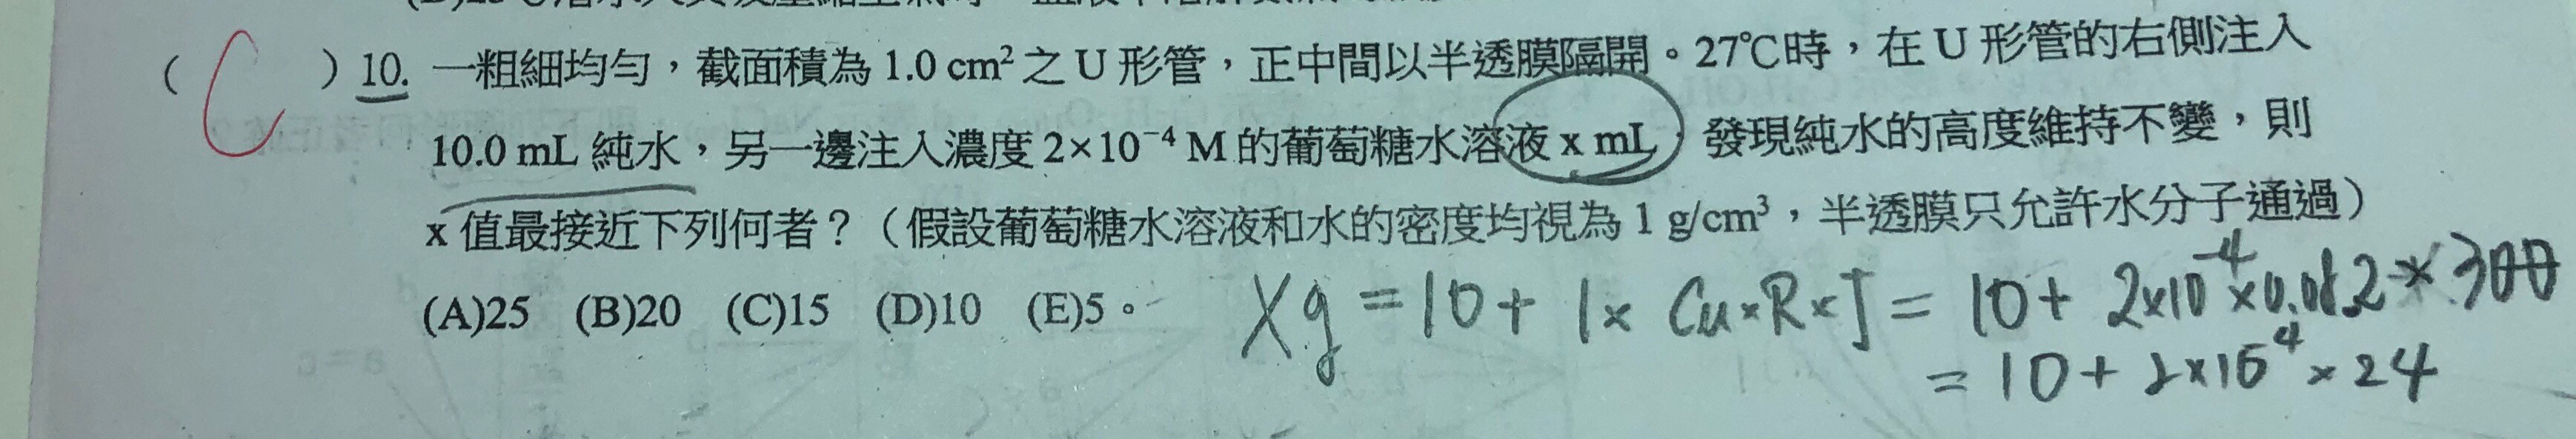 ( C ) 10. 一粗細均勻,截面積為 1.0 cm² 之 U 形管,正中間以半透膜隔開。27℃時,在 U 形管的右側注入
10.0 mL 純水,另一邊注入濃度 2×10⁻⁴ M 的葡萄糖水溶液 x mL,發現純水的高度維持不變,則
x 值最接近下列何者?(假設葡萄糖水溶液和水的密度均視為 1 g/cm³,半透膜只允許水分子通過)
(A)25 (B)20 (C)15 (D)10 (E)5。
Xg = 10 + 1× CM×R×T = 10 + 2×10⁻⁴×0.082×300
= 10 + 2×10⁻⁴×24